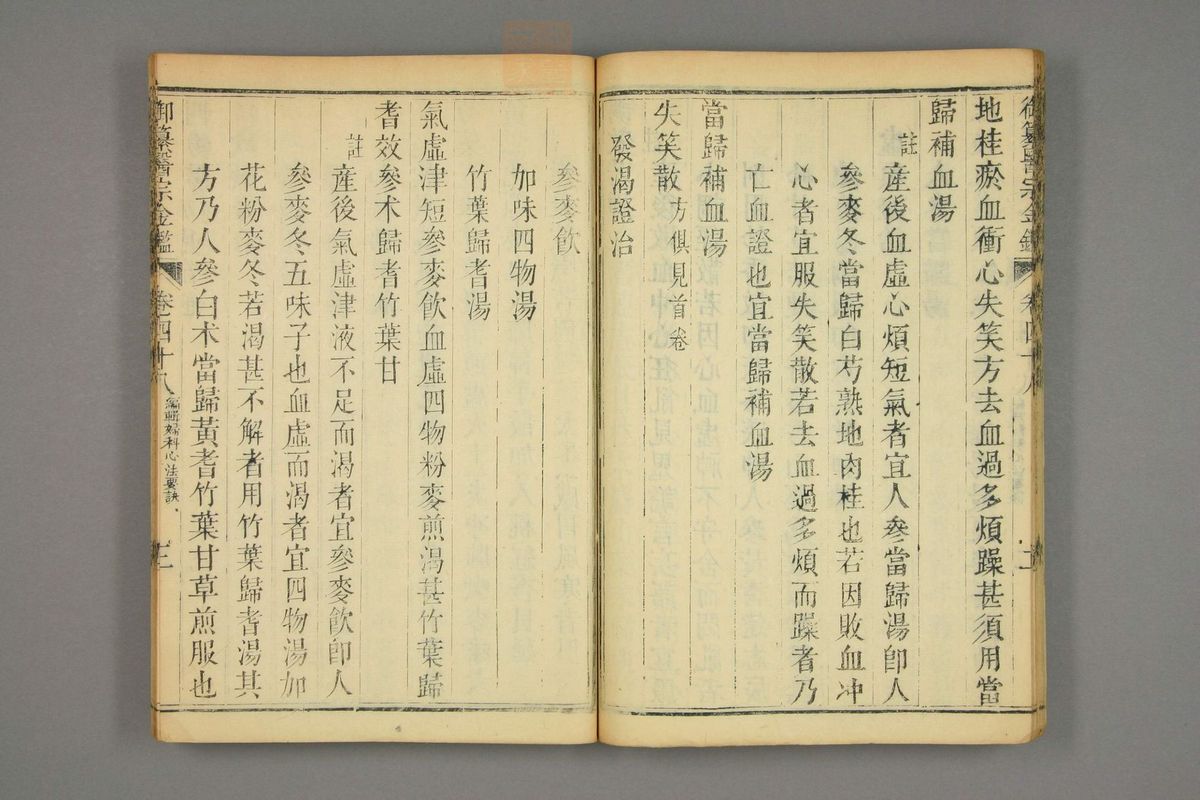 御纂醫宗金鑑 卷四十八 二
地桂瘀血衝心失笑方去血過多煩躁甚須用當
歸補血湯
註產後血虛心煩短氣者宜人參當歸湯卽人
參麥冬當歸白芍熟地肉桂也若因敗血冲
心者宜服失笑散若去血過多煩而躁者乃
亡血證也宜當歸補血湯
當歸補血湯
失笑散方俱見首卷
發渴證治
參麥飲
加味四物湯
竹葉歸耆湯
氣虛津短參麥飲血虛四物粉麥煎渴甚竹葉歸
耆效參术歸耆竹葉甘
註產後氣虛津液不足而渴者宜參麥飲卽人
參麥冬五味子也血虛而渴者宜四物湯加
花粉麥冬若渴甚不解者用竹葉歸耆湯其
方乃人參白术當歸黃耆竹葉甘草煎服也
御纂醫宗金鑑 卷四十八 編輯婦科心法要訣 三